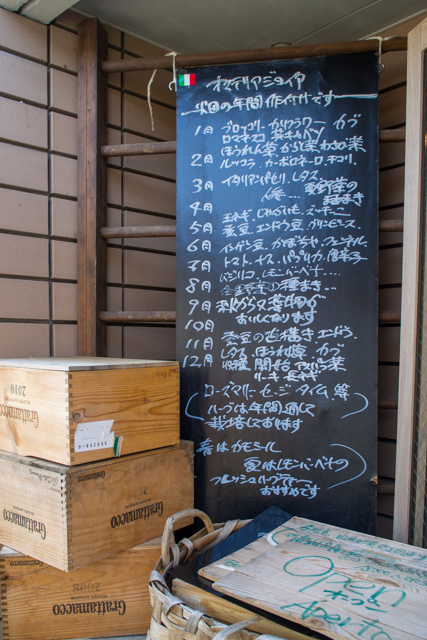 オステリアジョイア
火田の年間作付けです
1月 ブロッコリ、カリフラワー カブ
ロマネスコ 芽キャベツ
ほうれん草 からし菜 わさび菜
2月 ルッコラ カーボロネーロ、チコリ、
3月 イタリアンパセリ、レタス
人参… 夏野菜の
種まき
4月 玉ネギ、じゃがいも、ズッキーニ
5月 蚕豆、エンドウ豆、グリンピース、
6月 インゲン豆、かぼちゃ、フェンネル、
7月 トマト、ナス、パプリカ、唐辛子
バジリコ、レモンバーベナ…
8月 冬野菜の種まき…
9月 秋から又葉物が
おいしくなります
10月
11月 蚕豆の種まき エンドウ、
12月 レタス、ほうれん草、カブ
収穫開始
リーキ 長ネギ
ローズマリー セージ タイム 等
ハーブは年間通して
栽培しております
春はカモミール
夏はレモンバーベナの
フレッシュハーブティーが
おすすめです
2010
Grattamacco
Grattamacco
2008
Grattamacco
Open
オープン
Aperto